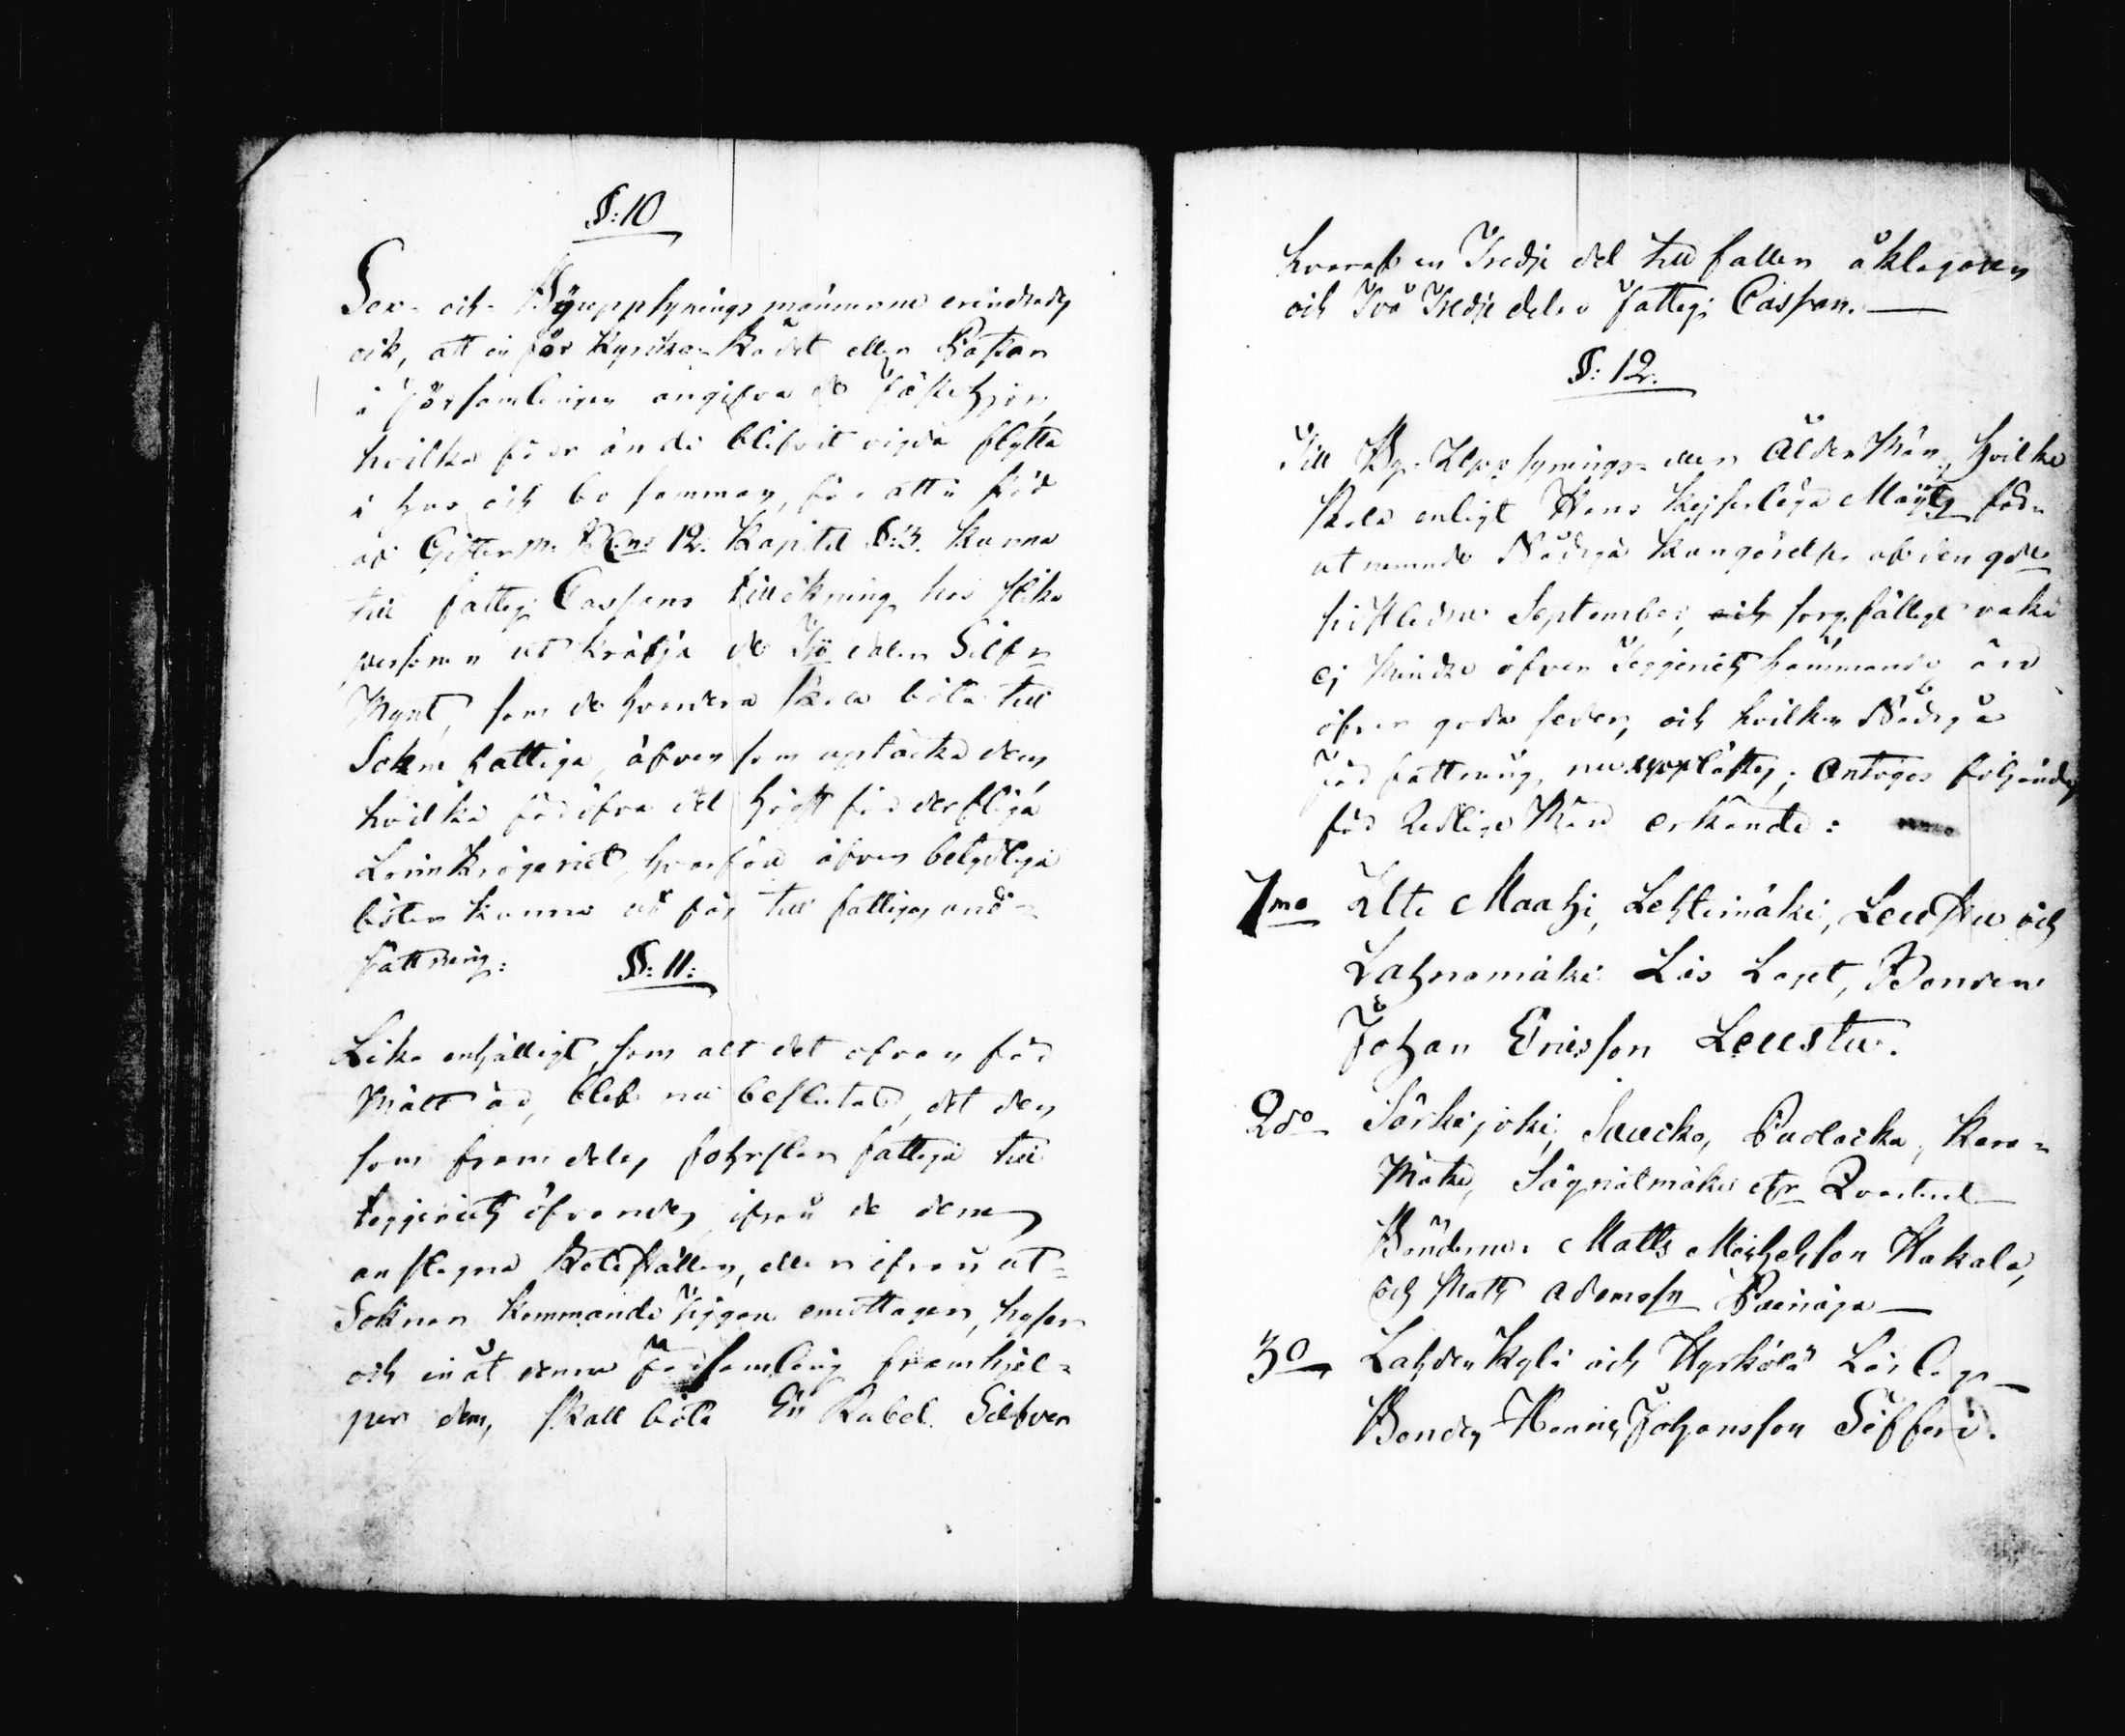 §: 10
Sex- och Byuppsynings männerne erindrades
ock, att inför Kyrko-Rådet eller Pastor
i Församlingen angifva de Fästehjon,
hvilka förr än de blifvit vigda flytta
i hus och bo samman, för att i stöd
af Gifterm: B:ns 12. Kapitel §:3. kunna
till fattig Cassans tillökning hos slika
personer utkräfja de Tjo daler Silf:r
Mynt, som de hvardera skola böta till
Soknens fattiga, äfven som uptäcka dem,
hvilka föröfva det högst förderfliga
Lönnkrögeriet, hvarföre äfven betydliga
böter kunna utfås till fattigas und-
sättning:
§: 11:
Lika enhälligt, som alt det ofvan för
mält är, blef nu beslutadt, det den
som fremdeles fohrslar fattiga till
tiggeriets öfvande, ifrån de dem
anslagna Rotehållen, eller ifrån ut-
Soknen kommande Tiggare emottager, hyser
och inåt denna Församling framhjel-
per dem, skall böta En Rubel Silfver
hvaraf en Tredje del tillfaller åklagaren
och Två Tredje delar Fattig Cassan.
§: 12.
Till By-Uppsynings- eller Ålder Män, hvilka
skola enligt Hans Kejserliga Maij:ts för-
ut nemnde Nådiga Kungörelse af den 9de
sistledne September, och sorgfälligt vaka
ej mindre öfver Tiggeriets hämmande än
öfver goda seder, och hvilken Nådiga
Författning nu upplästes; Antogos följande
för Redlige Män erkände:
1mo Ylte Maahi, Lehtimäki, Leustu och
Lahnamäki Läs Laget, Bonden
Johan Ericsson Leustu.
2do Särkijoki, Saucko, Pudocka, Kara-
mäki, Sägnilmäki etc Qvarteret
Bönderne Matts Michelsson Hakala,
och Matts Adamsson
3o Lahdenkylä och Hyrkölä Läslag
Bonden Henric Johansson Sifferi.